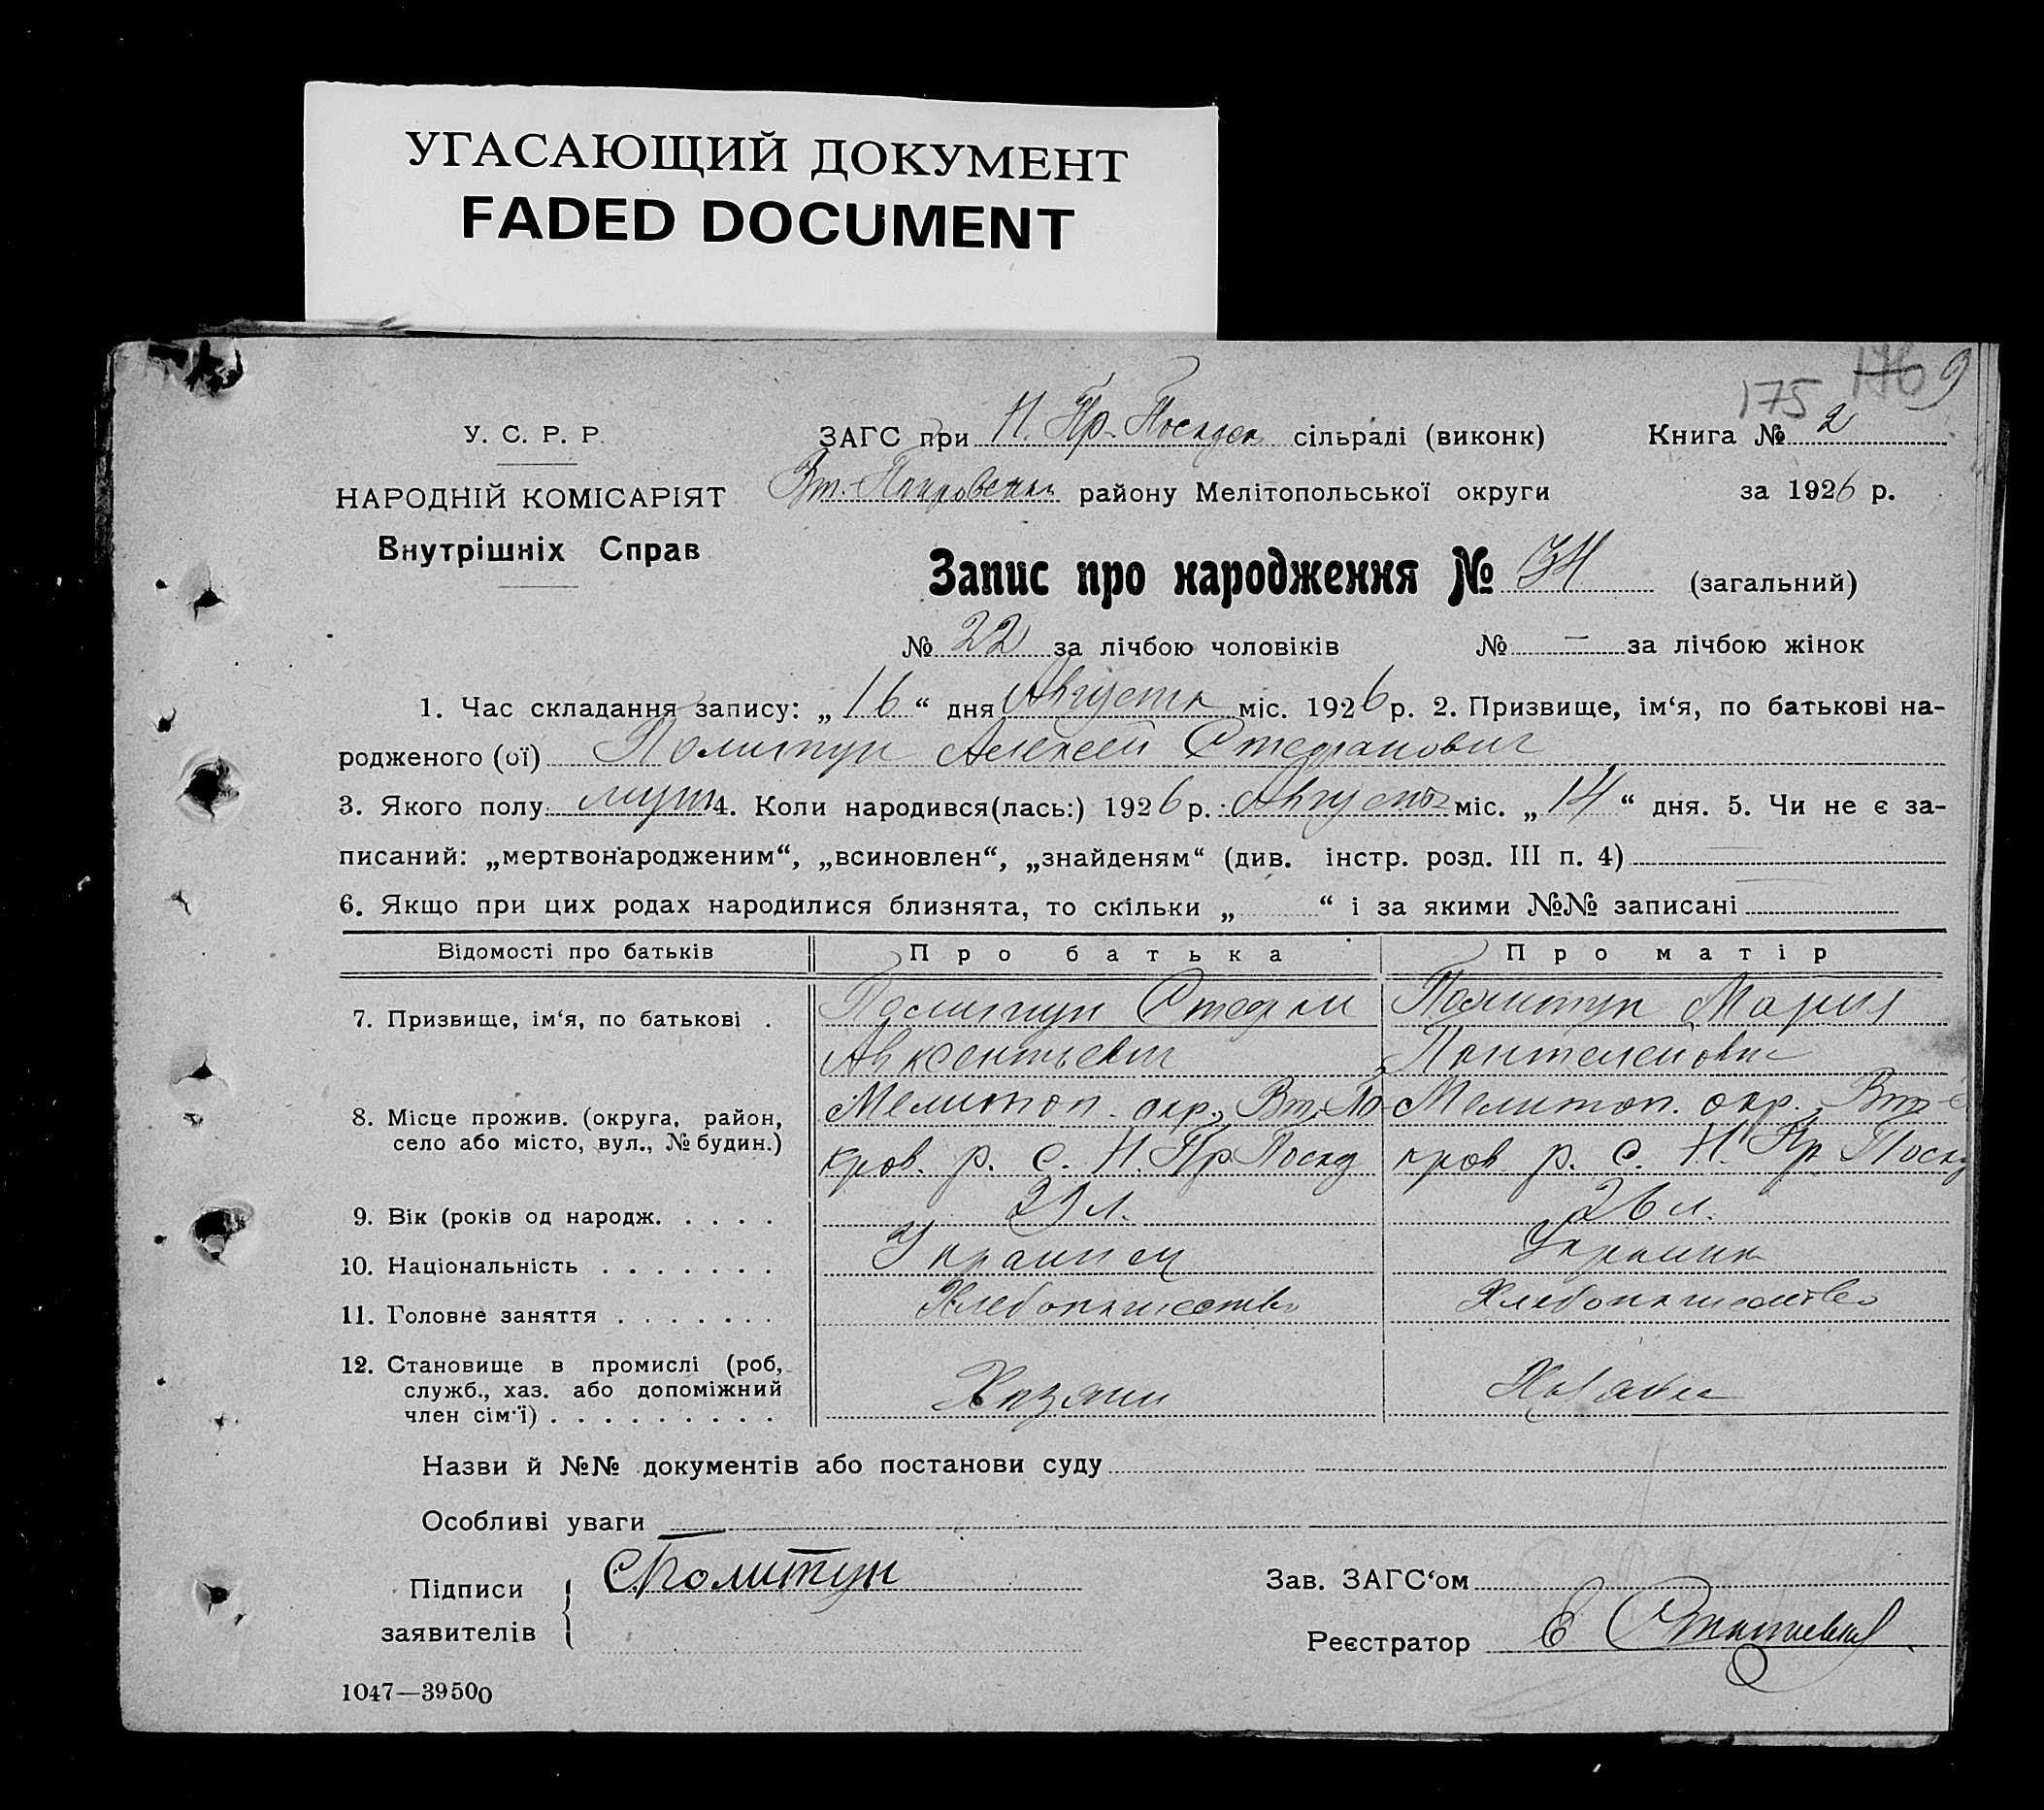 УГАСАЮЩИЙ ДОКУМЕНТ
FADED DOCUMENT
175 176 9
У. С. Р. Р.
НАРОДНІЙ КОМІСАРІЯТ
Внутрішніх Справ
ЗАГС при Н. Пр. Посадок сільраді (виконк)
Книга № 2
Вт.-Покровском району Мелітопольської округи
за 1926 р.
Запис про народження № 34 (загальний)
№ 22 за лічбою чоловіків № — за лічбою жінок
1. Час складання запису: „ 16 “ дня Августа міс. 1926 р. 2. Призвище, ім‘я, по батькові на-
родженого (ої) Политун Алексей Стефанович
3. Якого полу муж 4. Коли народився(лась:) 1926 р. Августа міс. „ 14 “ дня. 5. Чи не є за-
писаний: „мертвонародженим“, „всиновлен“, „знайденям“ (див. інстр. розд. III п. 4)
6. Якщо при цих родах народилися близнята, то скільки „ “ і за якими №№ записані
Відомості про батьків Про батька Про матір
7. Призвище, ім‘я, по батькові . Политун Стефан Политун Мария
Авксентьевич Пантелеиовна
8. Місце прожив. (округа, район, Мелитоп. окр., Вт. По- Мелитоп. окр., Вт-
село або місто, вул., № будин.) кров. р. с. Н. Пр. Посад кров р. с. Н. Пр Посад
9. Вік (років од народж. . . . . 29 л. 26 л.
10. Національність . . . . . . . Украинец Украинк
11. Головне заняття . . . . . . . Хлебопашество Хлебопашество
12. Становище в промислі (роб,
служб., хаз. або допоміжний
член сім‘ї) . . . . . . . . . Хозяин
Назви й №№ документів або постанови суду
Особливі уваги
Підписи СПолитун Зав. ЗАГС‘ом
заявителів Реєстратор Е
1047—39500